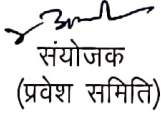 संयोजक
(प्रवेश समिति)